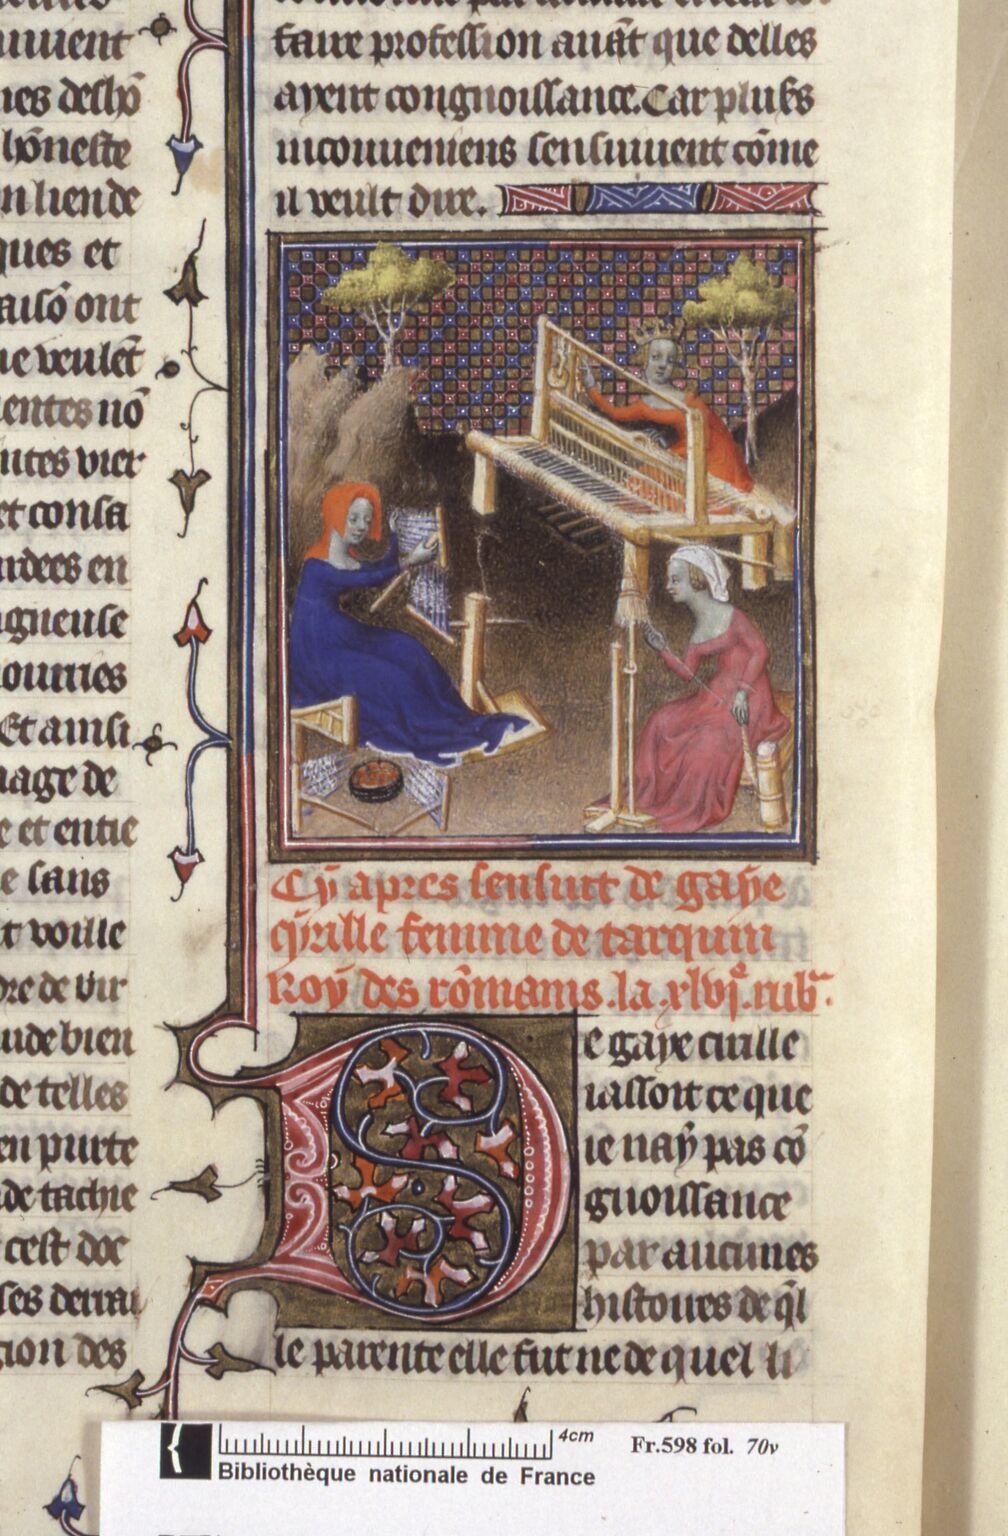 uiuent
nes desho
honneste
n liende
ques et
aisō ont
ue veulēt
nentes nō
utes vier
et consa
rdees en
gneuse
nourries
Et ainsi
nage de
e et entie
e sans
t voille
dre de vir
ude bien
de telles
en purte
de tache
cest doc
ses derrai
gion des
faire profession auāt que delles
ayent congnoissance. Car plus̄rs
inconueniens sensuiuent cōme
il veult dire.
Cy apres sensuit de gaye
cyrille femme de tarquin
Roy des rōmains. la .xlvi^e. rub^e.
De gaye cirille
iassoit ce que
ie nay pas cō
gnoissance
par aucunes
histoires de q̄l
le parente elle fut ne de quel li
4cm
Fr.598 fol. 70v
Bibliothèque nationale de France